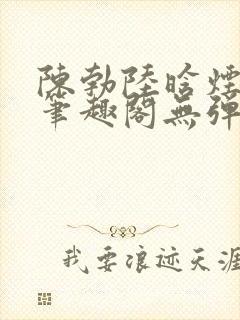 陳勃陸晗煙
筆趣閣無彈
我要浪迹天涯